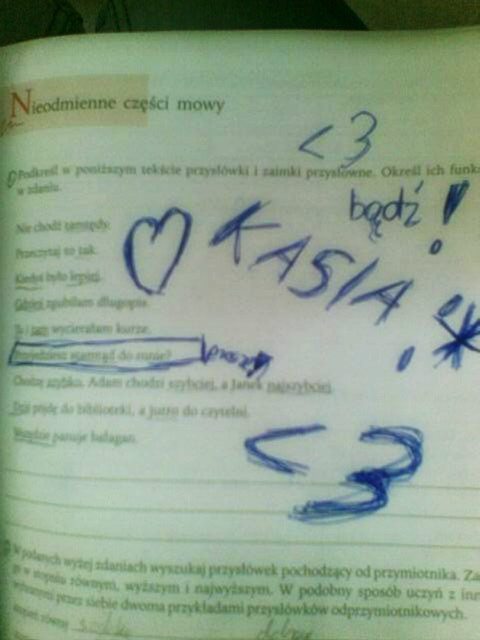 Nieodmienne części mowy
<3
Podkreśl w poniższym tekście przysłówki i zaimki przysłowne. Określ ich funk
w zdaniu.
bądź!
Nie chodź tamtędy.
Przeczytaj to tak.
KASIA
Kiedyś było lepiej.
Gdzieś zgubiłam długopis.
Tu i tam wycierałam kurze.
Przyjedziesz stamtąd do mnie?
Chodzę szybko. Adam chodzi szybciej, a Janek najszybciej.
Dziś pójdę do biblioteki, a jutro do czytelni.
Wszędzie panuje bałagan.
<3
W podanych wyżej zdaniach wyszukaj przysłówek pochodzący od przymiotnika. Za
go w stopniu równym, wyższym i najwyższym. W podobny sposób uczyń z inn
wybranymi przez siebie dwoma przykładami przysłówków odprzymiotnikowych.
stopień równy szybko